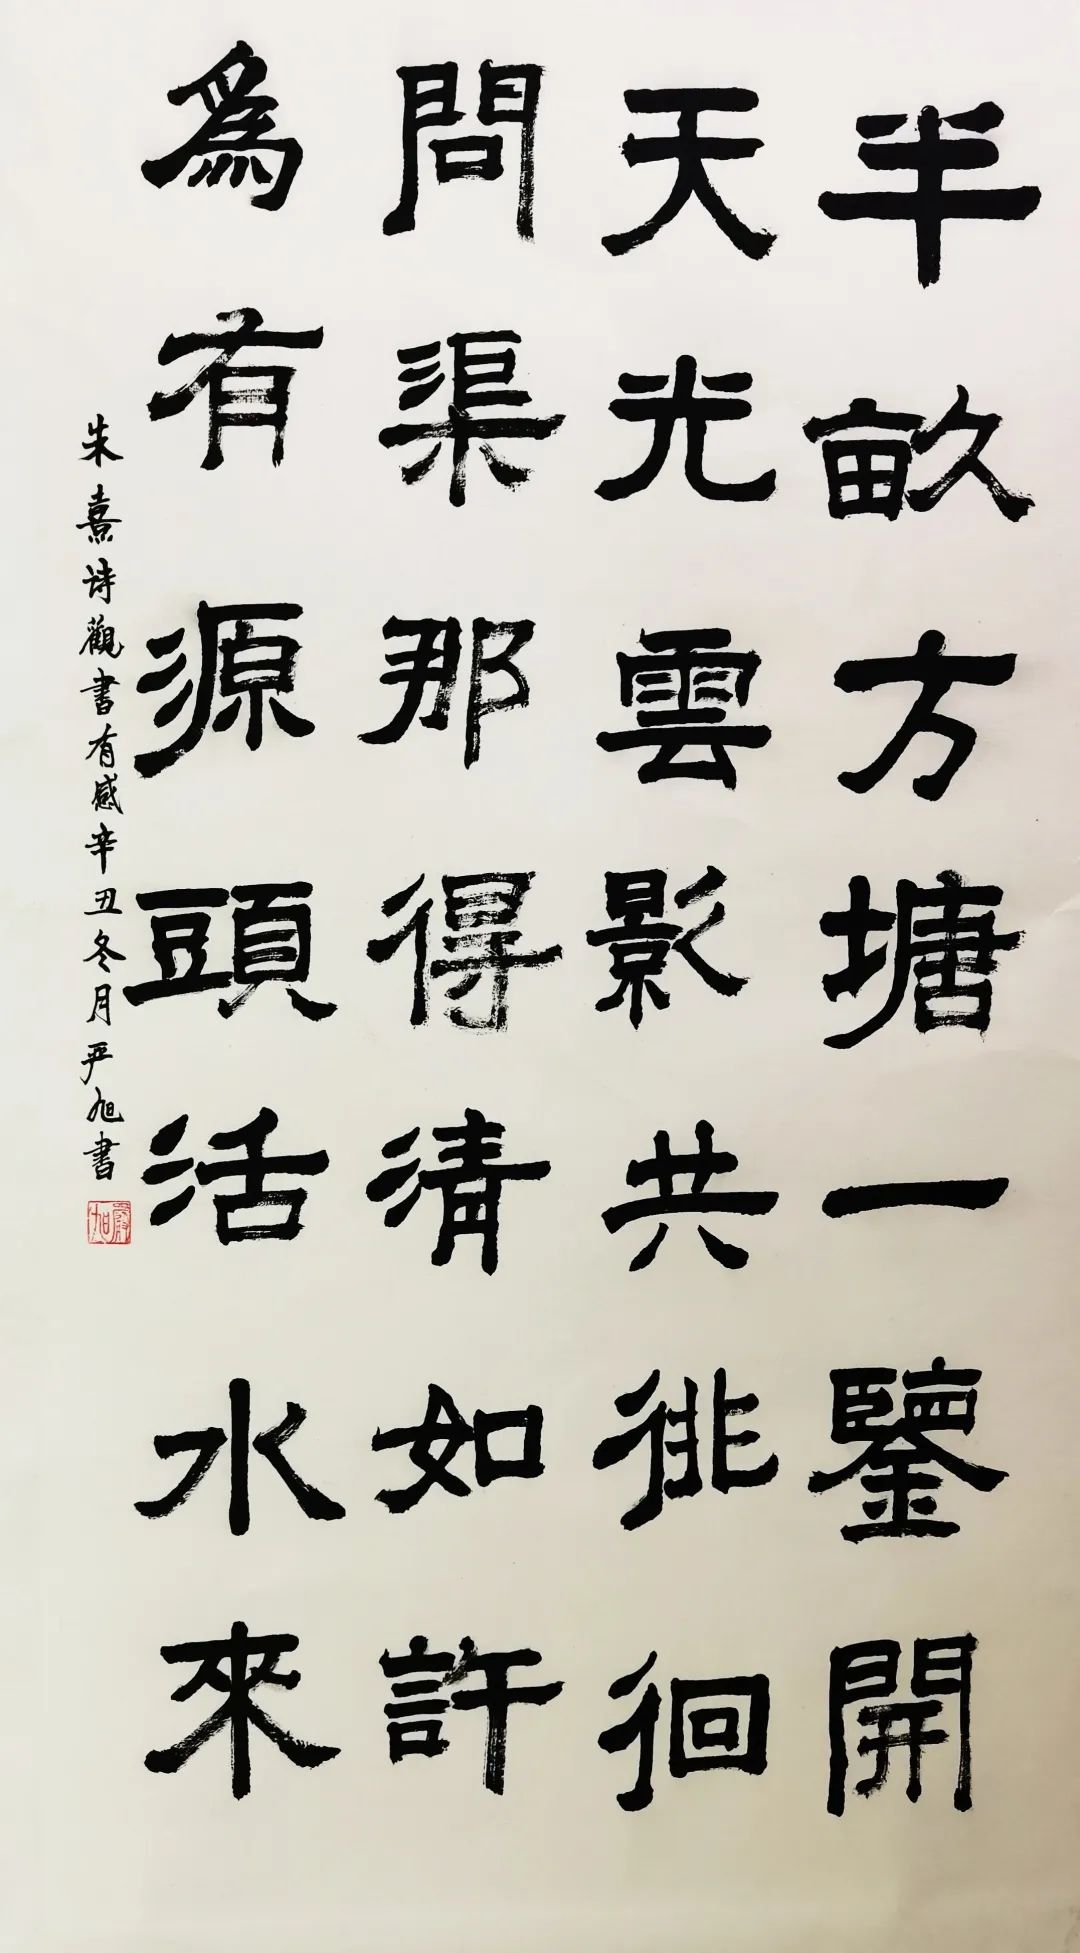 半畝方塘一鑒開
天光雲影共徘徊
問渠那得清如許
為有源頭活水來
朱熹诗觀書有感辛丑冬月严旭書
嚴旭